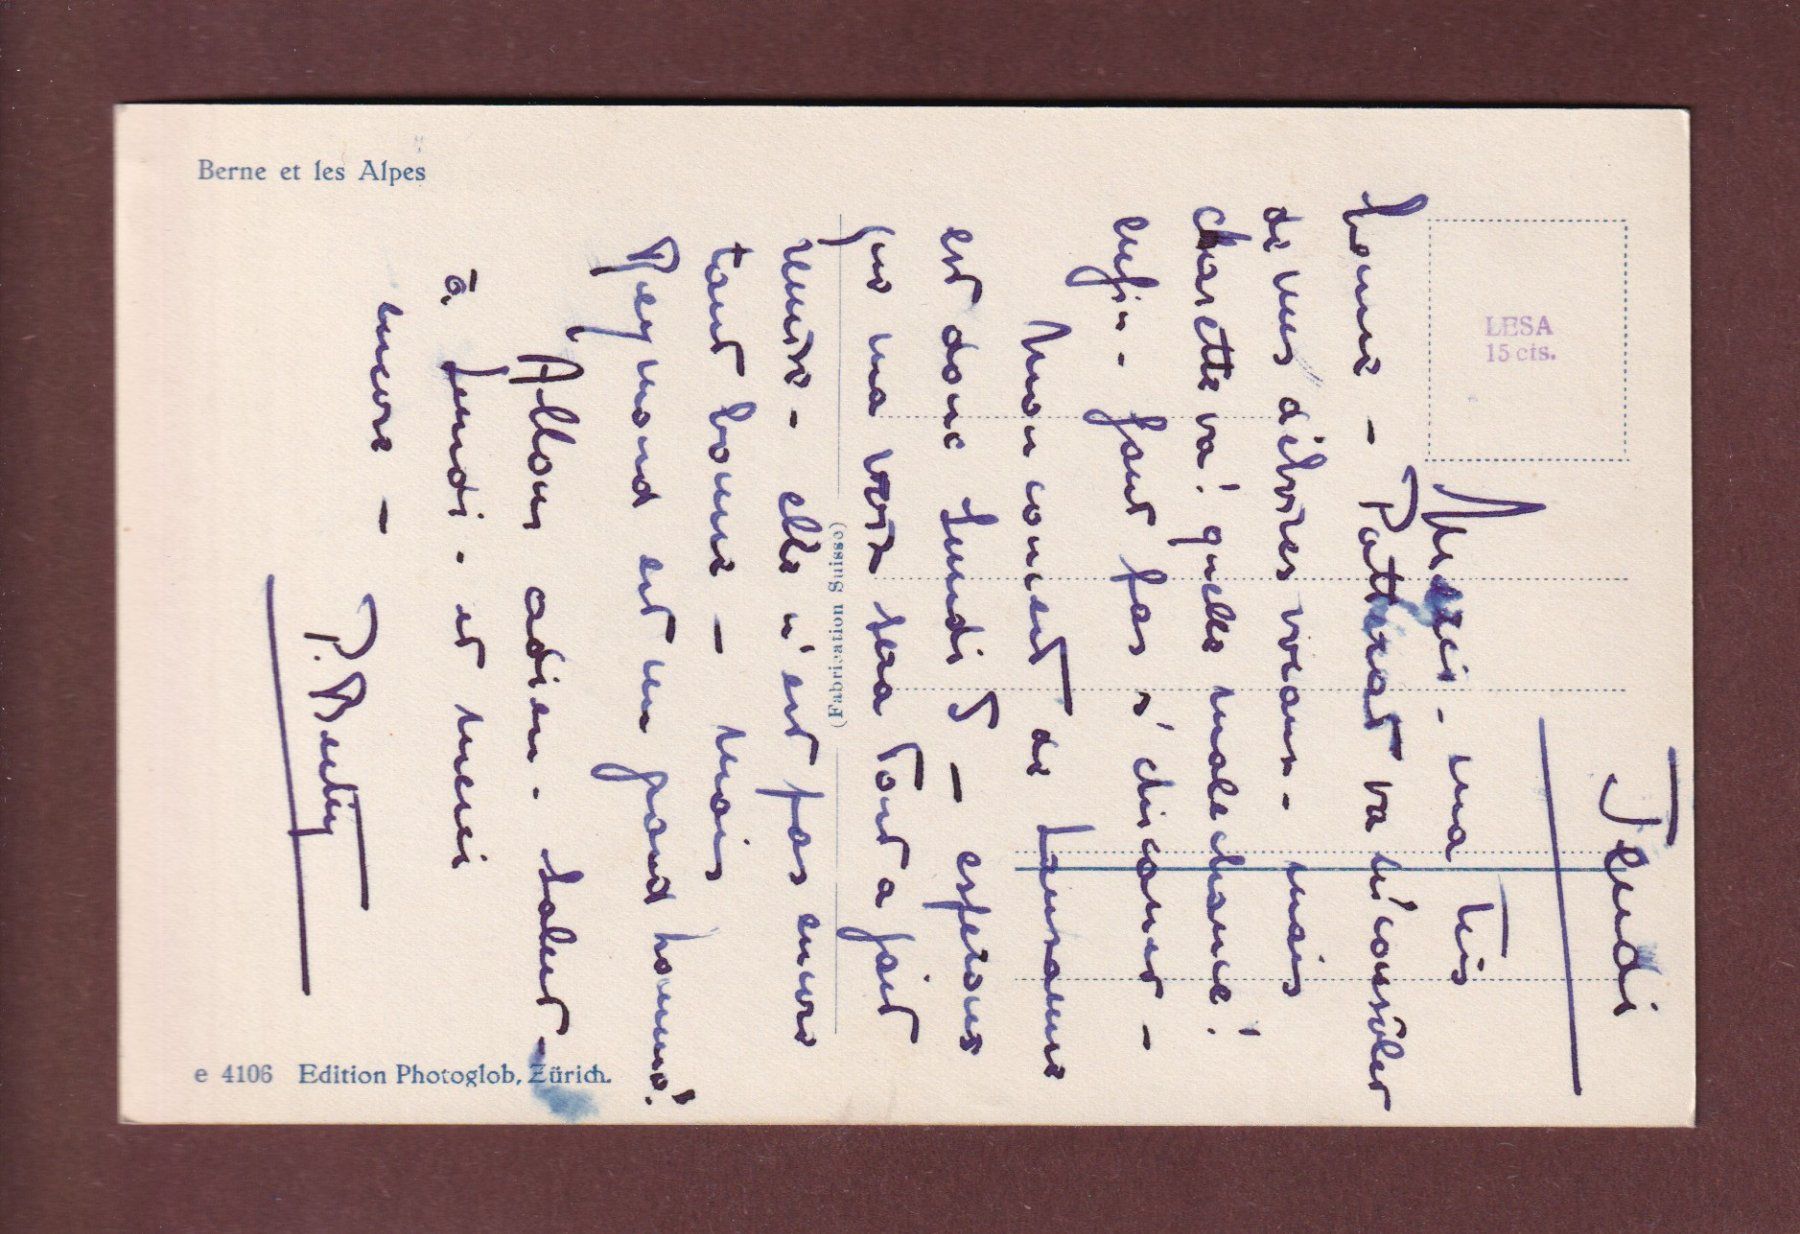 Berne et les Alpes
LESA
15 cts.
Jeudi
Merci - ma très
bonne - Potterat va m'consoler
de mes déboires vocaux - mais
charette va! quelle malechance!
enfin - faut pas s'chicaner -
Mon concert de Lausanne
est donc Lundi 5 - espérons
que ma voix sera tout à fait
remise - elle n'est pas encore
tant bonne - mais
Reymond est un grand homme!
Allons adieu. Salut -
à Lundi - et merci
encore -
P.
(Fabrication Suisse)
e 4106 Edition Photoglob, Zürich.